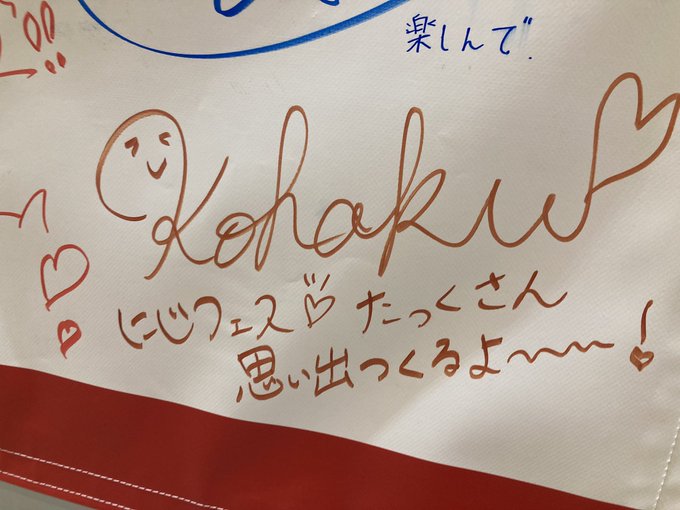 楽しんで
Kohaku
にじフェス♡たっくさん
思い出つくるよ〜〜〜!